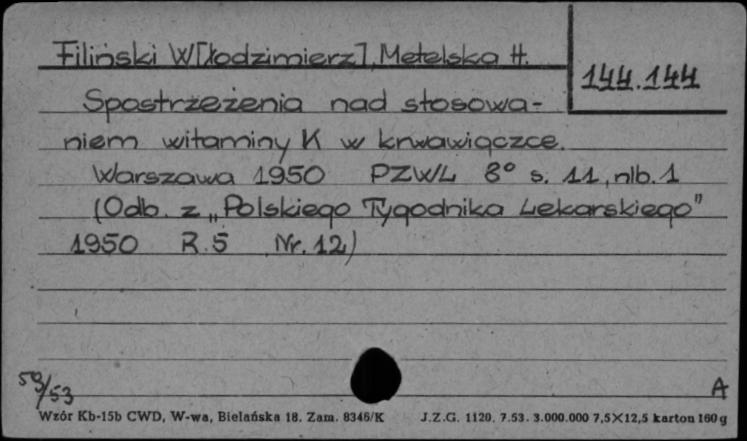 Filiński W[łodzimierz], Metelska H.
144.144
Spostrzeżenia nad stosowa-
niem witaminy K w krwawiączce.
Warszawa 1950 PZWL 8° s. 11, nlb. 1
(Odb. z „Polskiego Tygodnika Lekarskiego”
1950 R.5 Nr. 12)
59/53
A
Wzór Kb-15b CWD, W-wa, Bielańska 18. Zam. 8346/K J.Z.G. 1120. 7.53. 3.000.000 7,5×12,5 karton 160 g